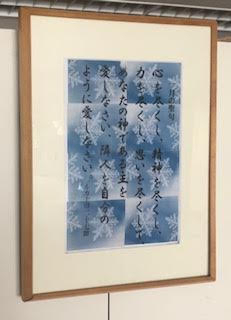 月の聖句
心を尽くし、精神を尽くし、
力を尽くし、思いを尽くして、
あなたの神である主を
愛しなさい、隣人を自分の
ように愛しなさい